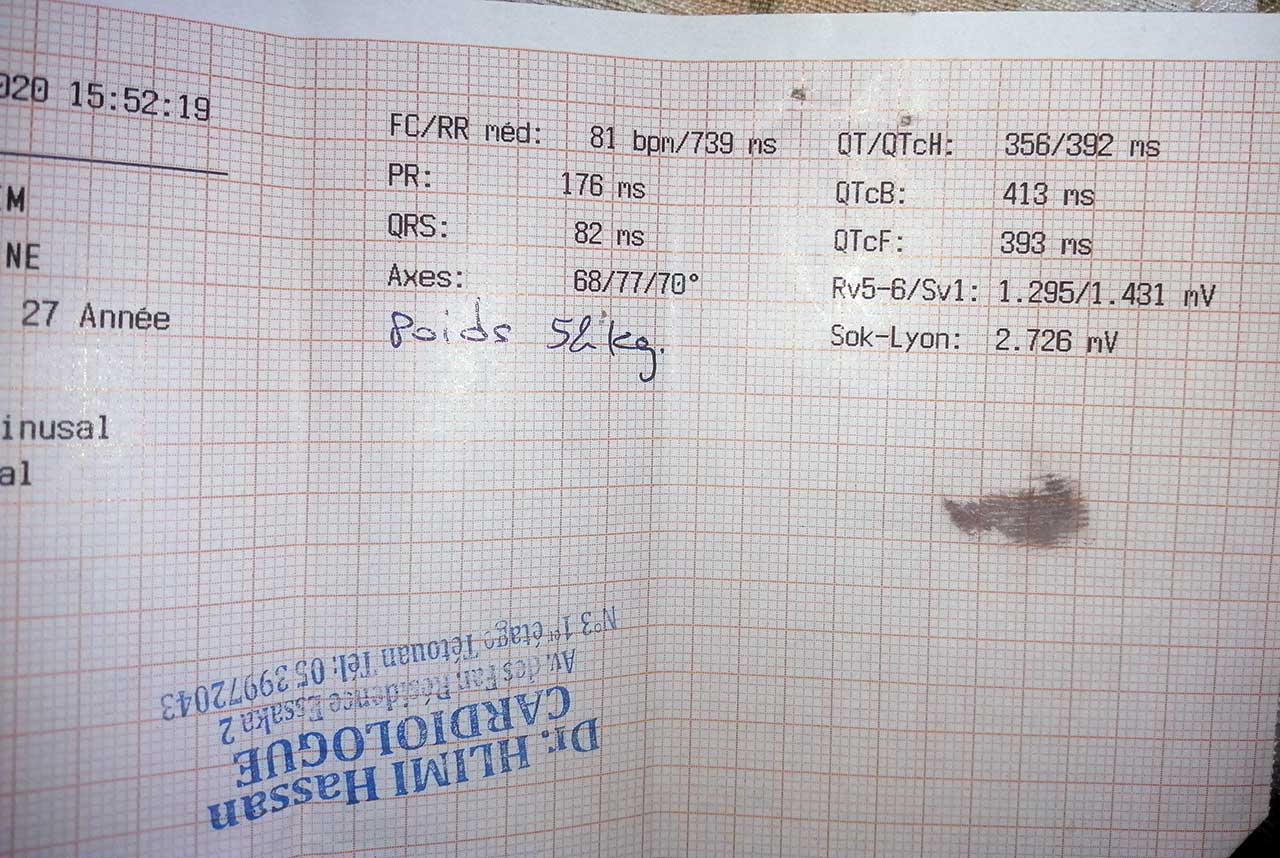 020 15:52:19
M
NE
27 Année
inusal
al
FC/RR méd: 81 bpm/739 ms
PR: 176 ms
QRS: 82 ms
Axes: 68/77/70°
Poids 52 kg.
QT/QTcH: 356/392 ms
QTcB: 413 ms
QTcF: 393 ms
Rv5-6/Sv1: 1.295/1.431 mV
Sok-Lyon: 2.726 mV
Dr. HLIMI Hassan
CARDIOLOGUE
Av. des Far Résidence Essaka 2
N°3 1er étage Tétouan Tél: 0539972043